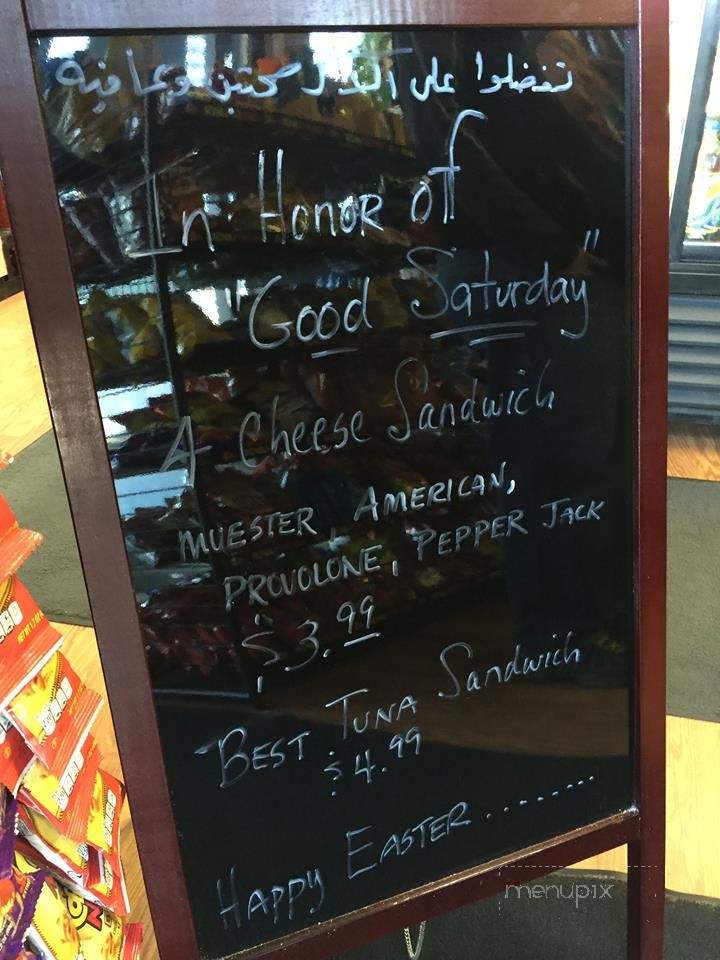 تفضلوا على صحتين وعافيه
In Honor of
"Good Saturday"
4 Cheese Sandwich
MUESTER, AMERICAN,
PROVOLONE, PEPPER JACK
$3.99
BEST TUNA Sandwich
$4.99
HAPPY EASTER........
menupix